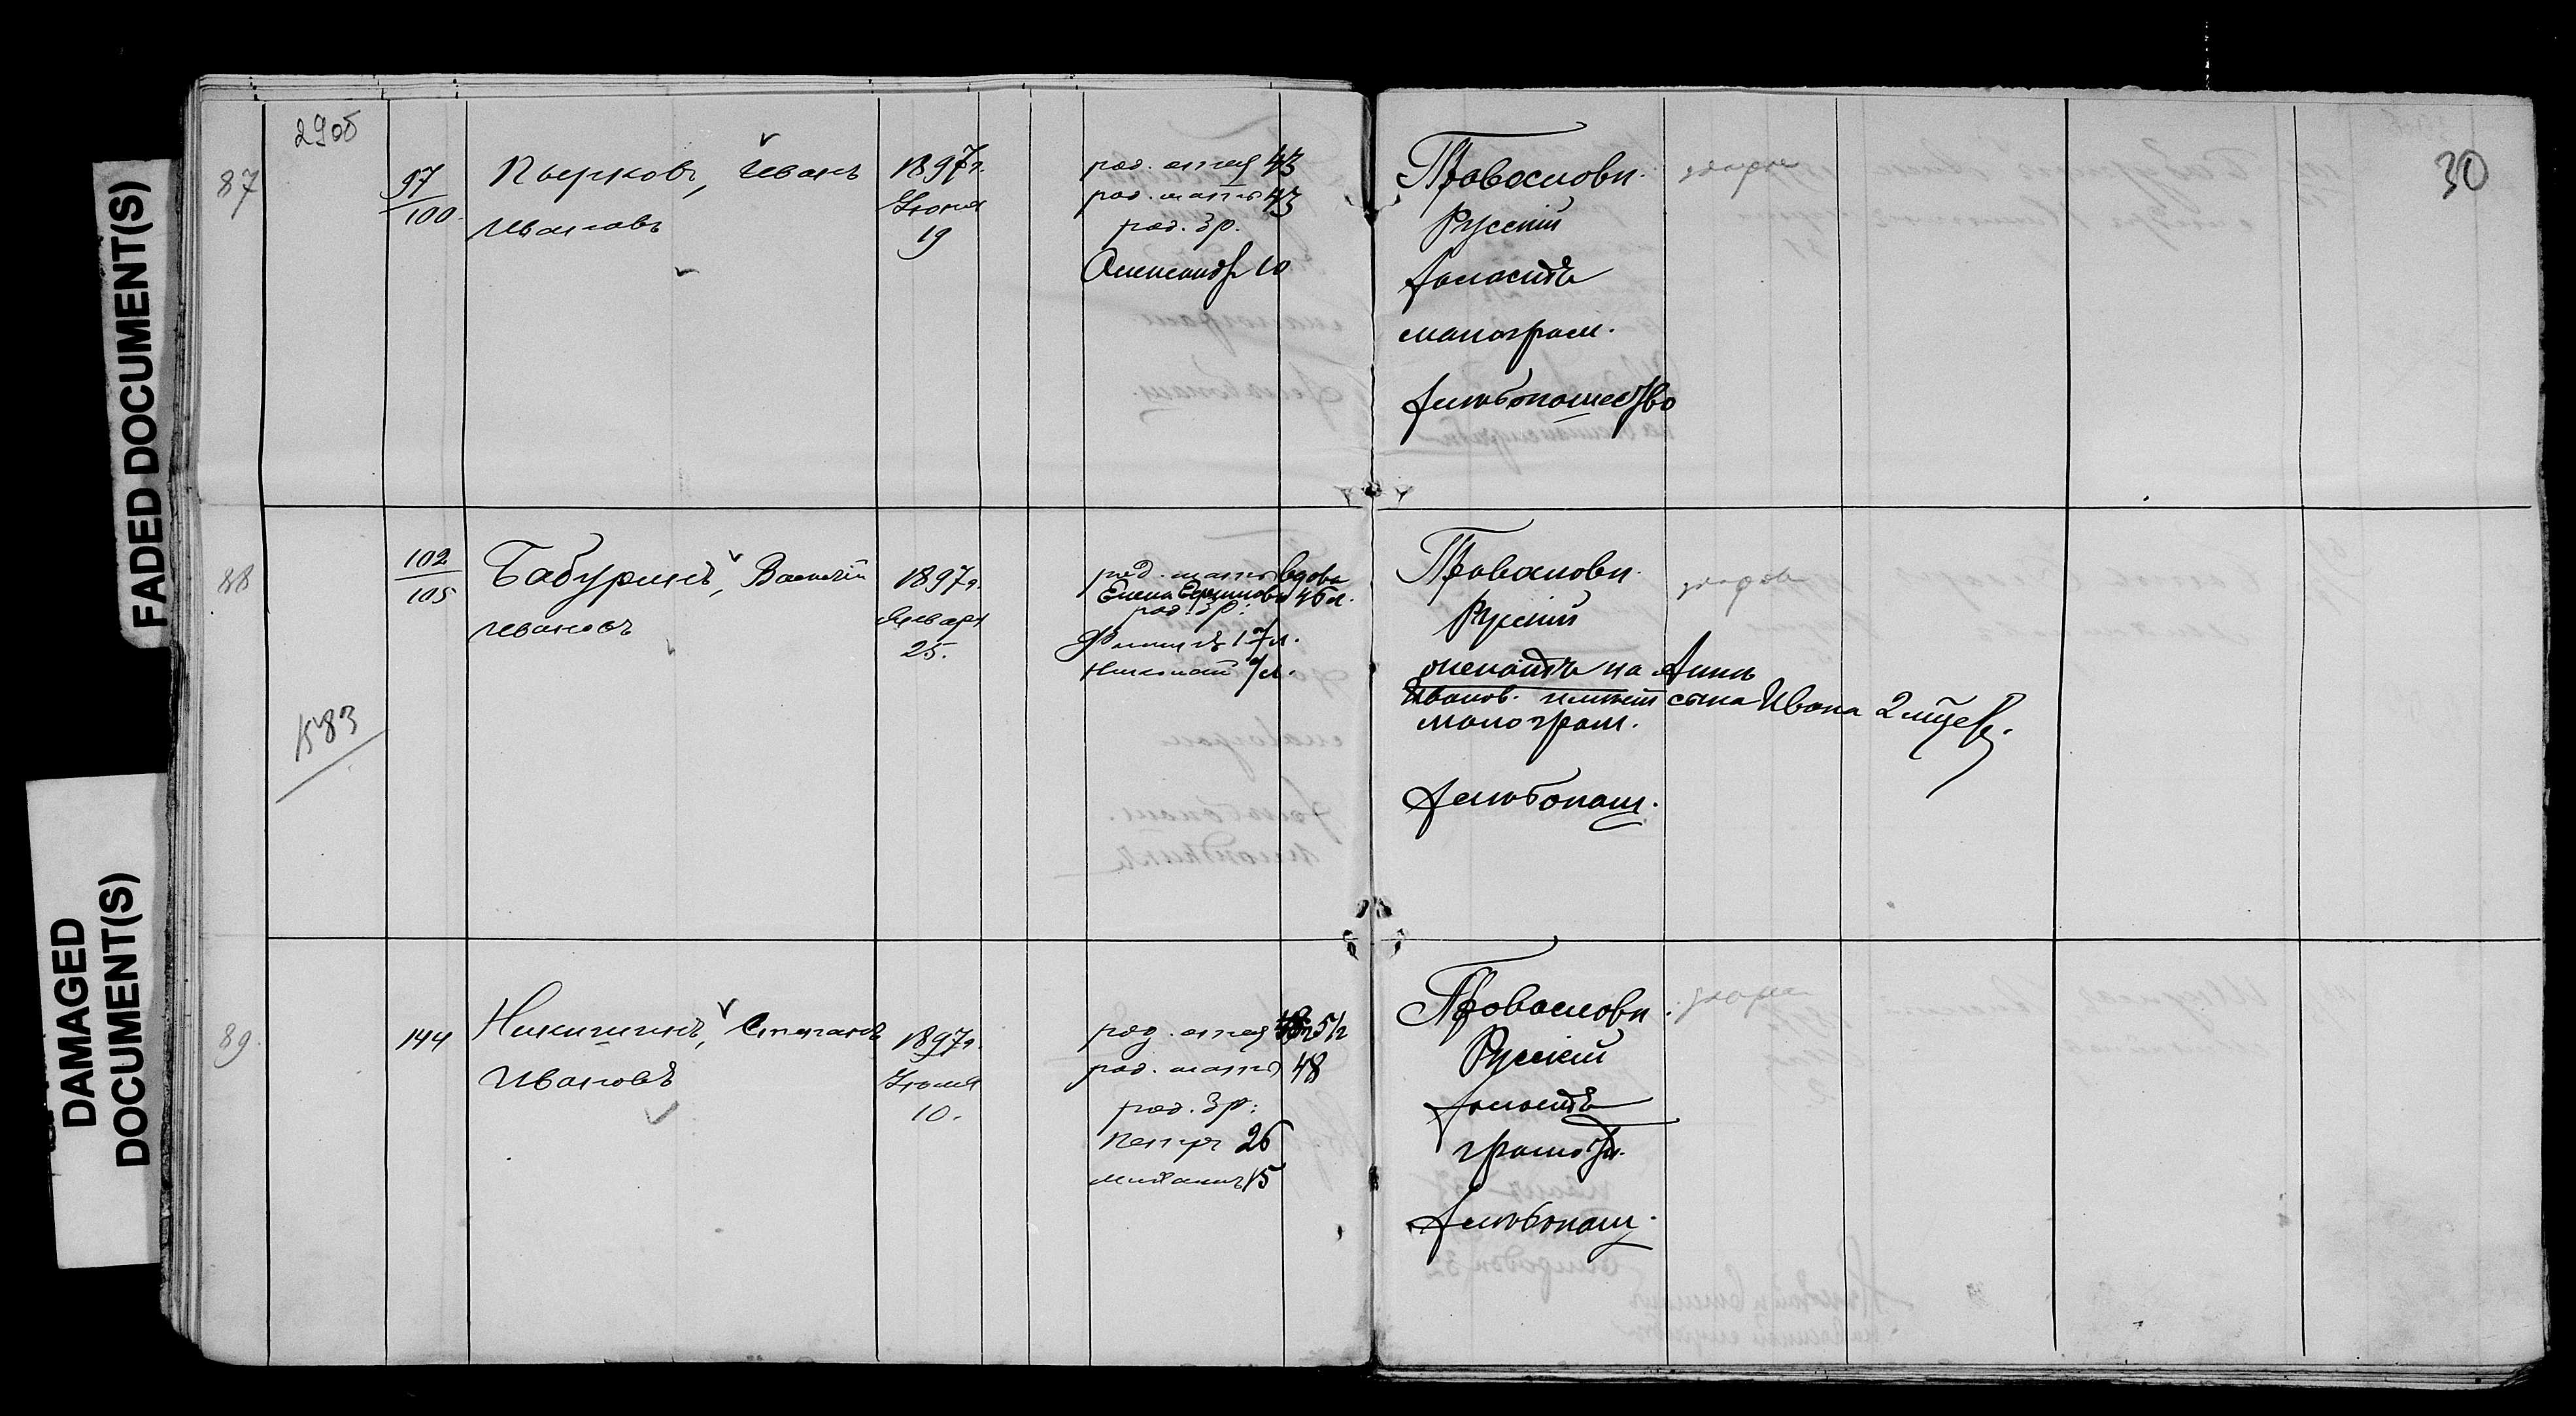 FADED DOCUMENT(S)
DAMAGED
DOCUMENT(S)
30
87
290б
97
100
Иванъ
Ивановъ
1897г.
Июня
19
род. отец 43
род. мать 43
род. бр.
Александр 10
Православн.
Русский
холостъ
малограм.
хлебопашество
88
1583
102
105
Бабуринъ, Василий
Ивановъ
1897г.
Января
25.
род. мать вдова
Елена 46 л.
род. бр:
Филиппъ 17 л.
Николай 9 л.
Православн.
Русский
женатъ на Анне
Иванов. имеет сына Ивана 2 мцев.
малограм.
хлебопаш.
89
144
Никишинъ, Степанъ
Ивановъ
1897г.
Июля
10.
род. отец 52
род. мать 48
род. бр:
Петръ 26
Михаилъ 15
Православн.
Русский
холостъ
грамотн.
хлебопаш.